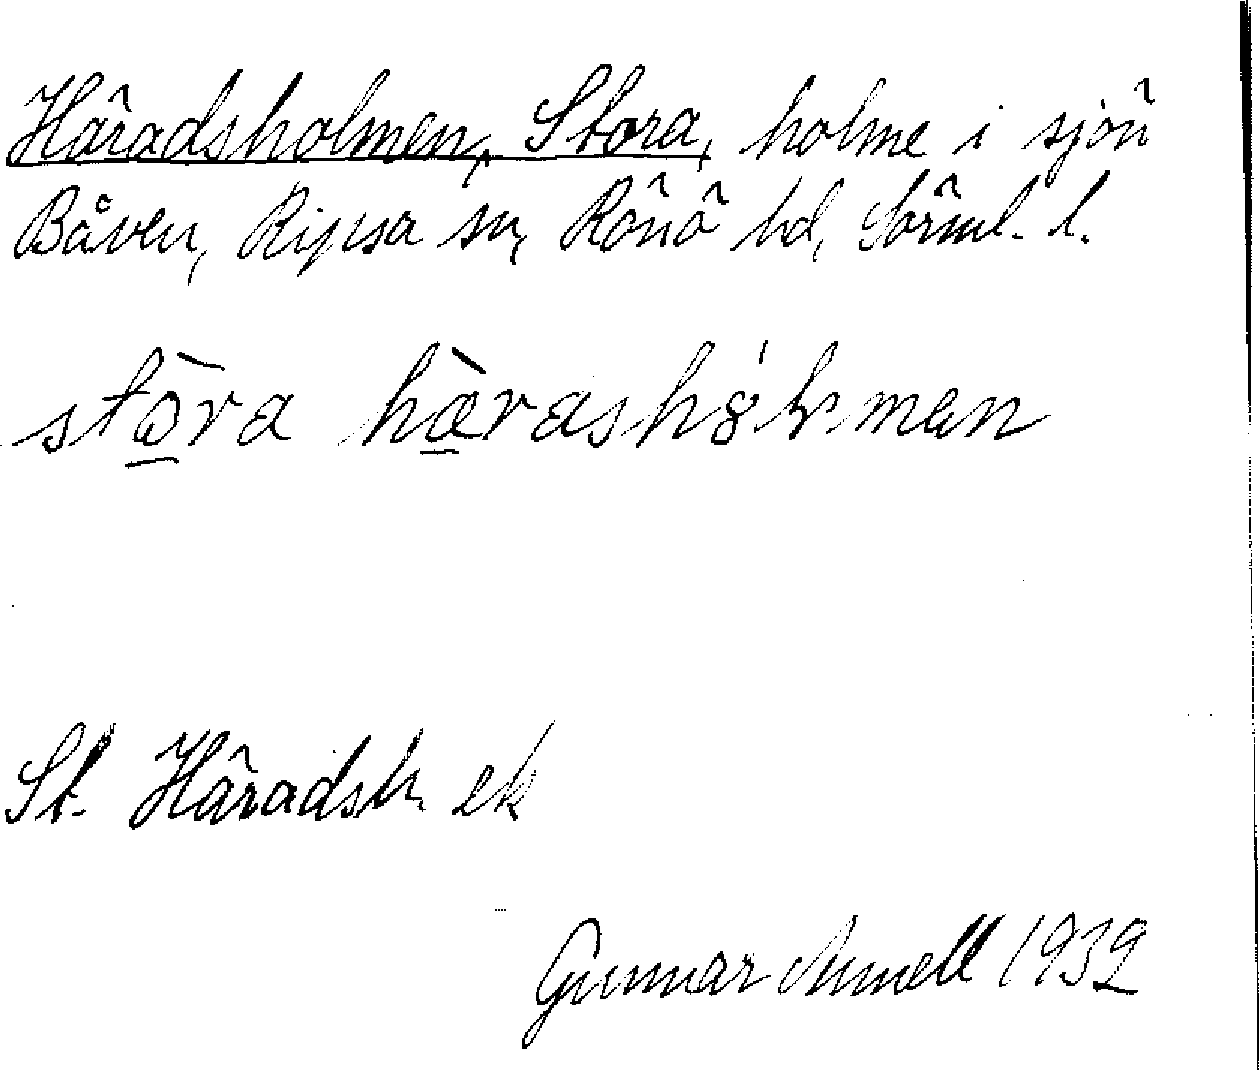 Häradsholmen, Stora, holme i sjön
Båven, Ripsa sn, Rönö hd, Sörml. l.
stòra hæ̀rashólmen
St. Häradsh. ek
Gunnar 1932